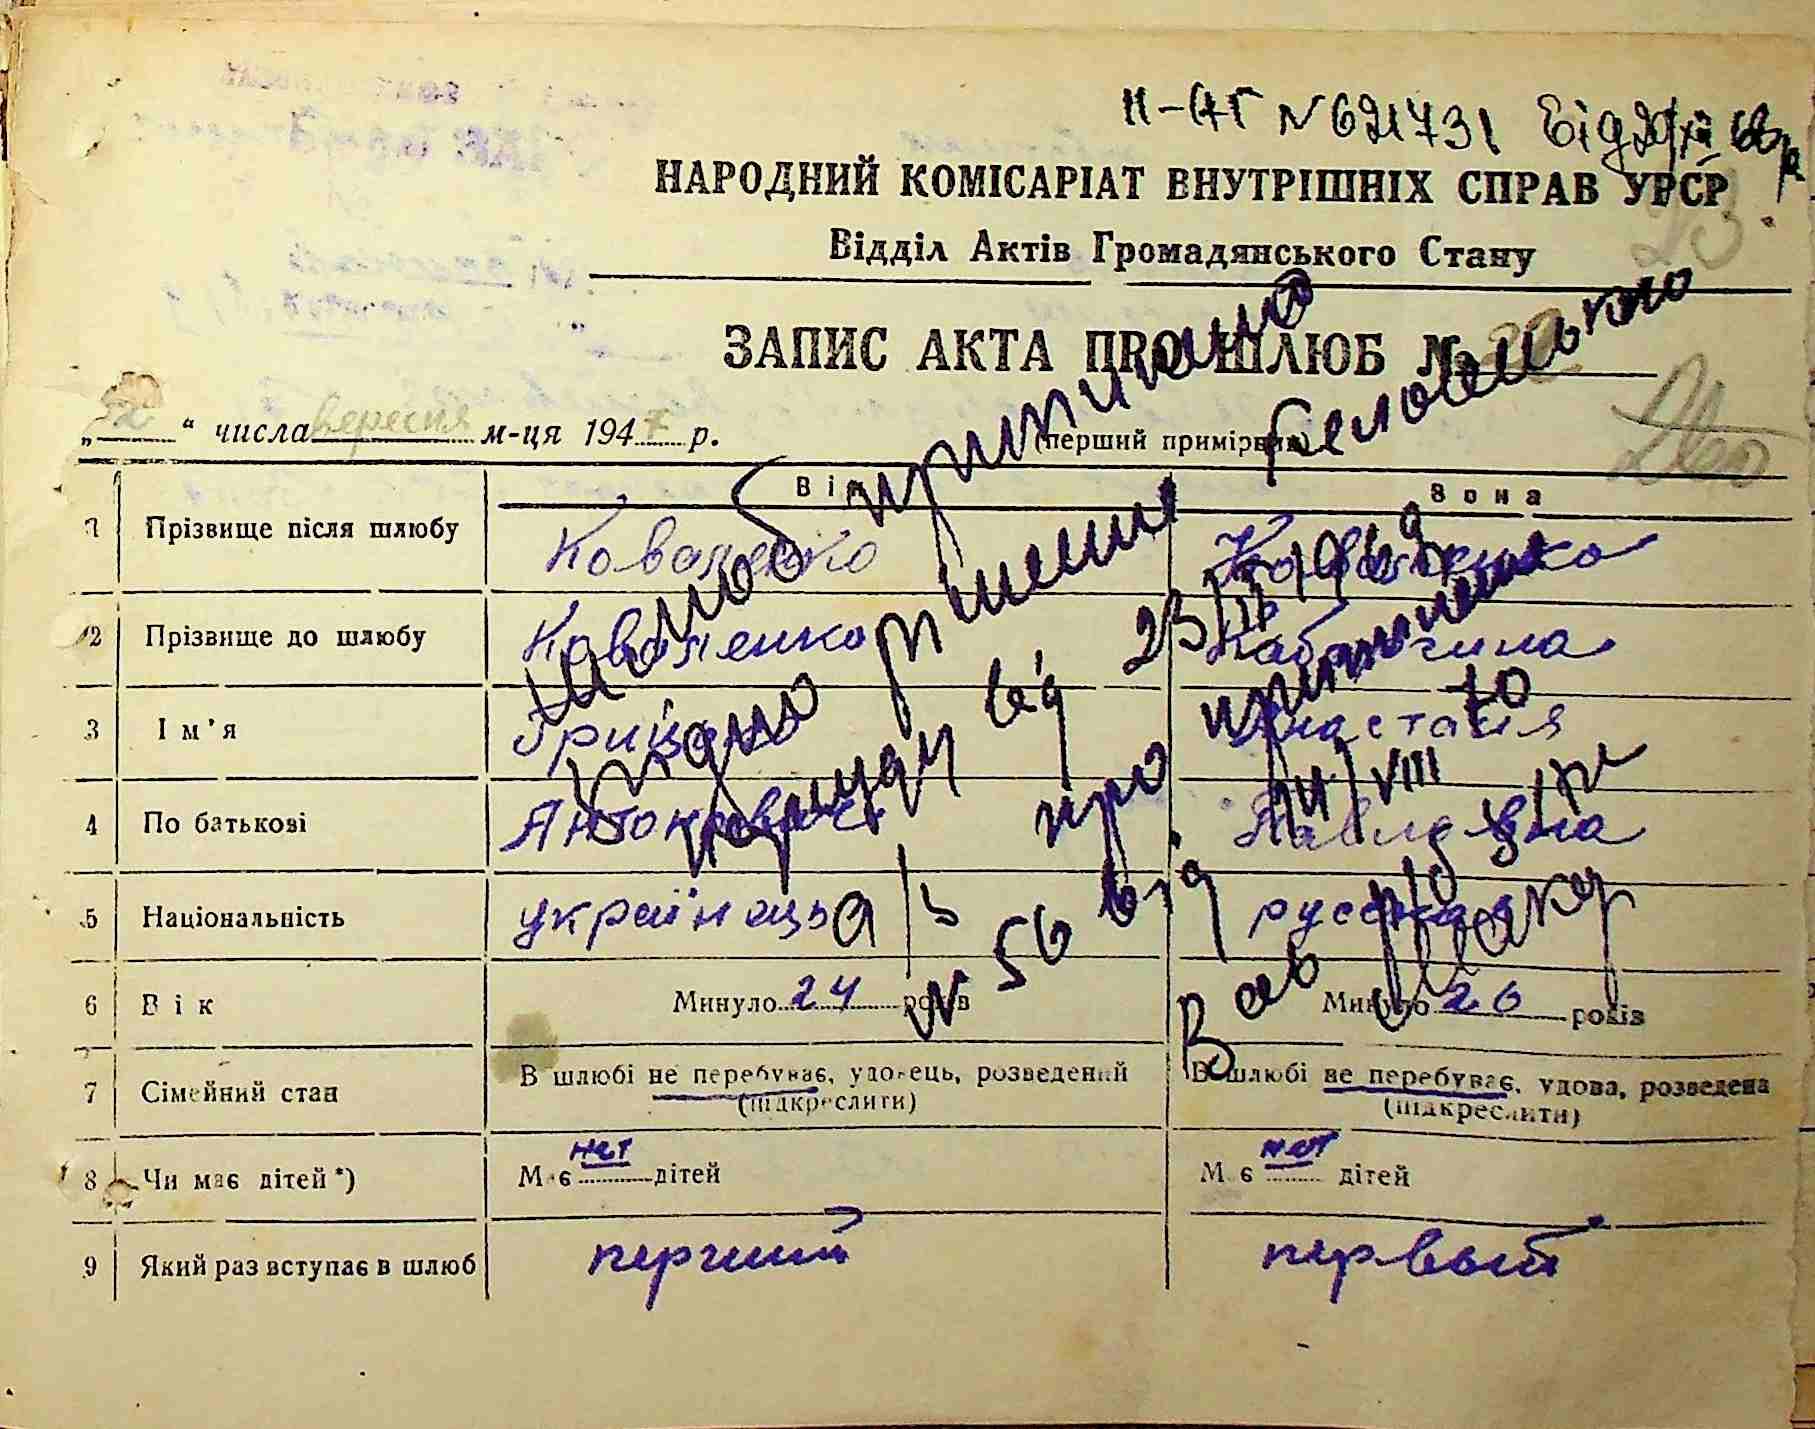 II-АГ № 621731 Від
НАРОДНИЙ КОМІСАРІАТ ВНУТРІШНІХ СПРАВ УРСР
23
Відділ Актів Громадянського Стану
ЗАПИС АКТА ПРО ШЛЮБ № 22
„ “ числа вересня м-ця 1947 р.
(перший примірник)
Він Вона
1 Прізвище після шлюбу Коваленко Коваленко
2 Прізвище до шлюбу Коваленко
3 Ім'я Грицько Анастасія
4 По батькові Антонович Павловна
5 Національність українець русская
6 Вік Минуло 24 років Минуло 26 років
7 Сімейний стан В шлюбі не перебуває, удовець, розведений В шлюбі не перебуває, удова, розведена
(підкреслити) (підкреслити)
8 Чи має дітей*) Має нет дітей Має нет дітей
9 Який раз вступає в шлюб перший первый
Шлюб припинено
згідно рішення Беловодського
нарсуду від 23/IV 1949
а/з № 56 про припинення
від 14/VIII
Зав бюро